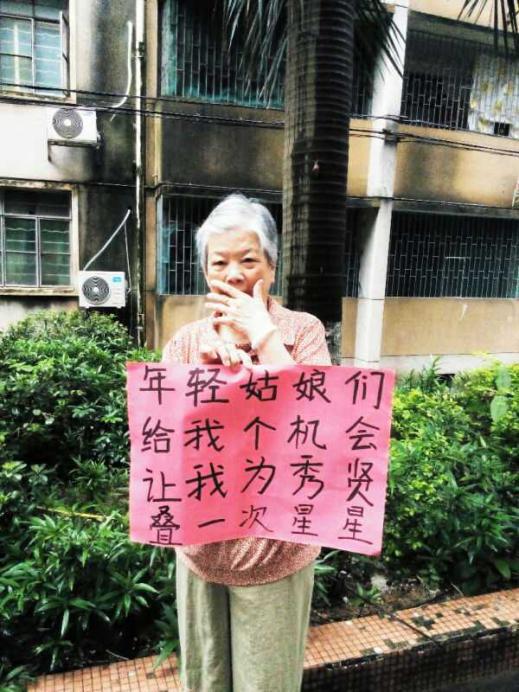 年轻姑娘们
给我个机会
让我为秀贤
叠一次星星